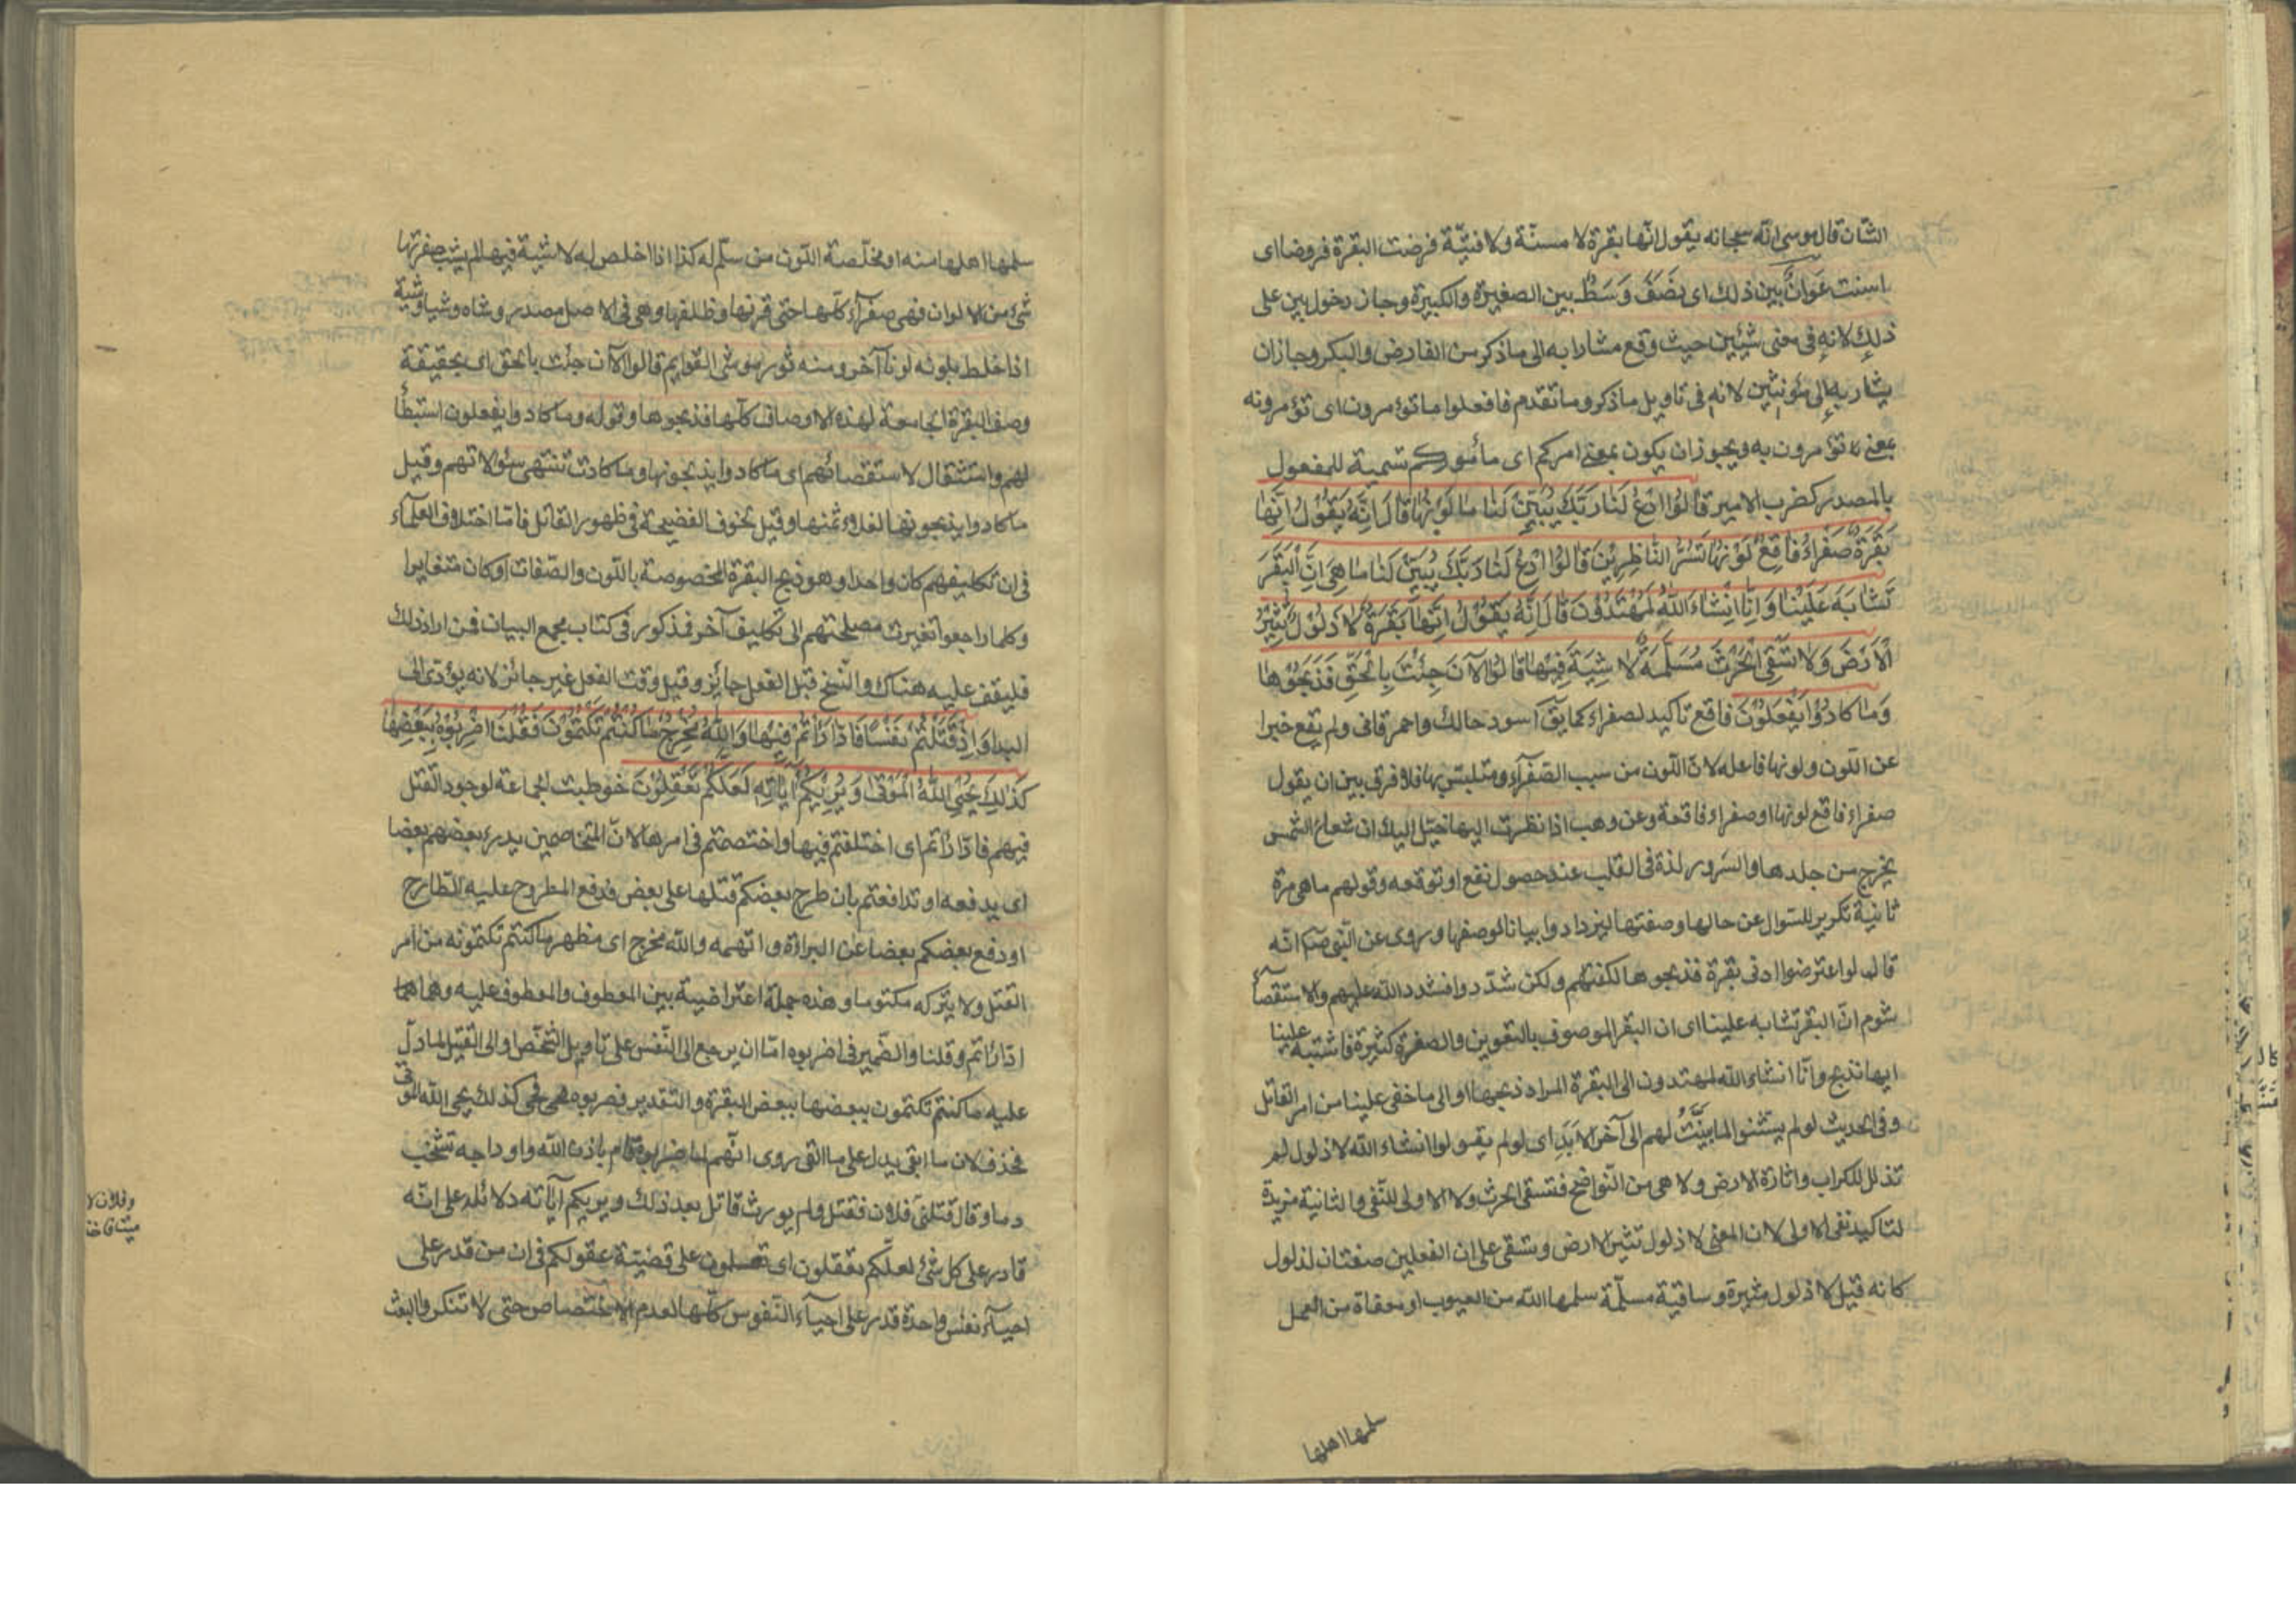 الشان قال موسى انه سبحانه يقول انها بقرة لا مسنة ولا فتيّة فرضت البقرة فروضا اى
اسنت عَوَانٌ بين ذلك اى نِصَفٌ وَسَطٌ بين الصغيرة والكبيرة وجاز دخول بين على
ذلك لانه فى معنى شيئين حيث وقع مشارا به الى ما ذكر من الفارض والبكر وجاز ان
يشار به الى مؤنثين لانه فى تاويل ما ذكر وما تقدم فافعلوا ما تؤمرون اى تؤمرونه
بمعنى تؤمرون به ويجوز ان يكون بمعنى امركم اى مأموركم تسمية للمفعول
بالمصدر كضرب الامير قَالُوا ادْعُ لَنَا رَبَّكَ يُبَيِّنْ لَنَا مَا لَوْنُهَا قَالَ اِنَّهُ يَقُولُ اِنَّهَا
بَقَرَةٌ صَفْرَاءُ فَاقِعٌ لَوْنُهَا تَسُرُّ النَّاظِرِينَ قَالُوا ادْعُ لَنَا رَبَّكَ يُبَيِّنْ لَنَا مَا هِىَ اِنَّ الْبَقَرَ
تَشَابَهَ عَلَيْنَا وَاِنَّا اِنْشَاءَ اللّٰهُ لَمُهْتَدُونَ قَالَ اِنَّهُ يَقُولُ اِنَّهَا بَقَرَةٌ لَا ذَلُولٌ تُثِيرُ
الْاَرْضَ وَلَا تَسْقِى الْحَرْثَ مُسَلَّمَةٌ لَا شِيَةَ فِيهَا قَالُوا الْآنَ جِئْتَ بِالْحَقِّ فَذَبَحُوهَا
وَمَا كَادُوا يَفْعَلُونَ فاقع تاكيد لصفراء كما يق اسود حالك واحمر قانى ولم يقع خبرا
عن اللون ولونها فاعله لان اللون من سبب الصفرآء ومتلبس بها فلا فرق بين ان يقول
صفراء فاقع لونها او صفراء فاقعة وعن وهب اذا نظرت اليها خيّل اليك ان شعاع الشمس
يخرج من جلدها والسرور لذة فى القلب عند حصول نفع او توقعه وقولهم ما هى مرة
ثانية تكرير للسوال عن حالها وصفتها ليزدادوا بيانا لوصفها وروى عن النبى ص انه
قال لو اعترضوا ادنى بقرة فذبحوها لكفتهم ولكن شدّدوا فشدد الله عليهم والاستقصآء
شوم ان البقر تشابه علينا اى ان البقر الموصوف بالتعوين والصفرة كثيرة فاشتبه علينا
ايها نذبح وانّا انشاء الله لمهتدون الى البقرة المراد ذبحها او الى ما خفى علينا من امر القاتل
وفى الحديث لو لم يستثنوا لما بُيّنَتْ لهم الى آخر الاَبَدِ اى لو لم يقولوا انشاء الله لا ذلول لم
تذلل للكراب واثارة الارض ولا هى من النواضح فتسقى الحرث ولا الاولى للنفى والثانية مزيدة
لتاكيد نفى الاولى لان المعنى لا ذلول تثير الارض وتسقى على ان الفعلين صفتان لذلول
كانه قيل لا ذلول مثيرة وساقية مسلّمة سلمها الله من العيوب او معفاة من العمل
سلمها اهلها
سلمها اهلها منه او مخلّصة اللون من سلّم له كذا اذا خلص له لا شية فيها لم يشب صفرتها
شئ من الالوان فهى صفرآء كلّها حتى قرنها وظلفها وهى فى الاصل مصدر وشاه وشيا وشية
اذا خلط بلونه لونا آخر ومنه ثور موشى القوايم قالوا الآن جئت بالحق اى بحقيقة
وصف البقرة الجامعة لهذه الاوصاف كلّها فذبحوها وقوله وما كادوا يفعلون استبطأ
لهم واستثقال لاستقصائهم اى ما كادوا يذبحونها وما كادت تنتهى سئولاتهم وقيل
ما كادوا يذبحونها لغلاء ثمنها وقيل لخوف الفضيحة فى ظهور القاتل فامّا اختلاف العلمآء
فى ان تكليفهم كان واحدا وهو ذبح البقرة المخصوصة باللون والصّفات او كان متغايرا
وكلما راجعوا تغيرت مصلحتهم الى تكليف آخر فمذكور فى كتاب مجمع البيان فمن اراد ذلك
فليقف عليه هناك والنّسخ قبل الفعل جائز وقبل وقت الفعل غير جائز لانه يؤدى الى
البدا وَاِذْ قَتَلْتُمْ نَفْسًا فَادَّارَأْتُمْ فِيهَا وَاللّٰهُ مُخْرِجٌ مَا كُنْتُمْ تَكْتُمُونَ فَقُلْنَا اضْرِبُوهُ بِبَعْضِهَا
كَذٰلِكَ يُحْيِى اللّٰهُ الْمَوْتٰى وَيُرِيكُمْ آيَاتِهِ لَعَلَّكُمْ تَعْقِلُونَ خوطبت الجماعة لوجود القتل
فيهم فادّارأتم اى اختلفتم فيها واختصمتم فى امرها لانّ المتخاصمين يدرء بعضهم بعضا
اى يدفعه او تدافعتم بان طرح بعضكم قتلها على بعض فدفع المطروح عليه الطارح
او دفع بعضكم بعضا عن البراءة واتهمه والله مخرج اى مظهر ما كنتم تكتمونه من امر
القتل ولا يتركه مكتوما وهذه جملة اعتراضية بين المعطوف والمعطوف عليه وهما
ادّارأتم وقلنا والضّمير فى اضربوه امّا ان يرجع الى النّفس على تاويل الشّخص او الى القتيل لما دلّ
عليه ما كنتم تكتمون ببعضها ببعض البقرة والتقدير فضربوه فحى كذلك يحى الله الموتى
فحذف لان ما ابقى يدل على ما القى روى انّهم لما ضربوه قام باذن الله واوداجه تشخب
دما وقال قتلنى فلان فقتل ولم يورث قاتل بعد ذلك ويريكم آياته دلائله على انّه
قادر على كل شئ لعلّكم تعقلون اى تعملون على قضيّة عقولكم فى ان من قدر على
احيآء نفس واحدة قدر على احيآء النّفوس كلّها لعدم الاختصاص حتى لا تنكروا البعث
وفلان لا